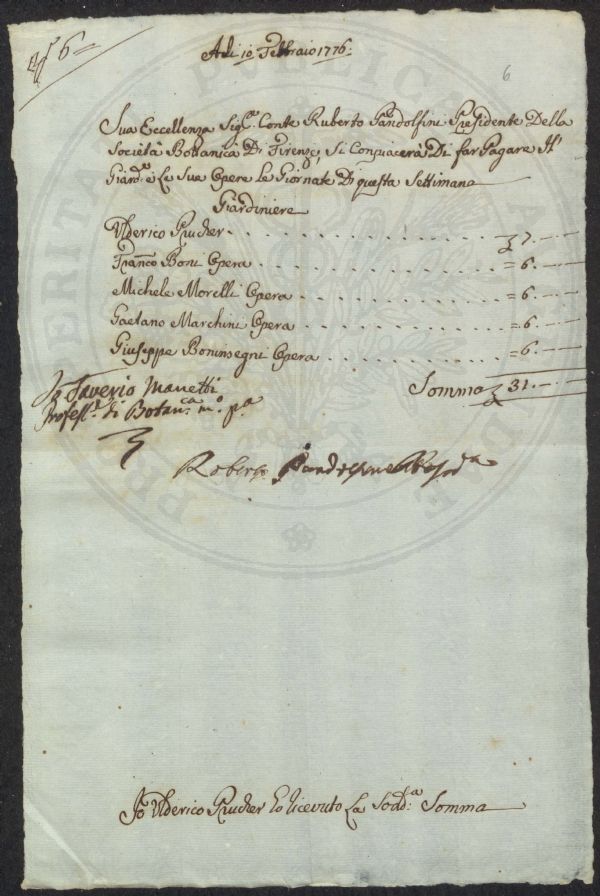 N° 6
6
Adi 10 Febbraio 1776:
Sua Eccellenza Sig:e Conte Ruberto Pandolfini Presidente Della
Società Bottanica Di Firenze, Si Conpiacerà Di far Pagare Al
Giard:e e Le Sue Opere Le Giornate Di questa Settimana
Giardiniere
Ulderico Prucher 7.
Franco Boni Opera = 6.
Michele Morelli Opera = 6.
Gaetano Marchini Opera = 6.
Giuseppe Boninsegni Opera = 6.
Somma 31.
Saverio Manetti
Profess:e di Botan:ca m:o p:a
Roberto Pandolfini
Io Ulderico Prucher ho ricevuto La Sodd:a Somma
PUBLICA
PRO